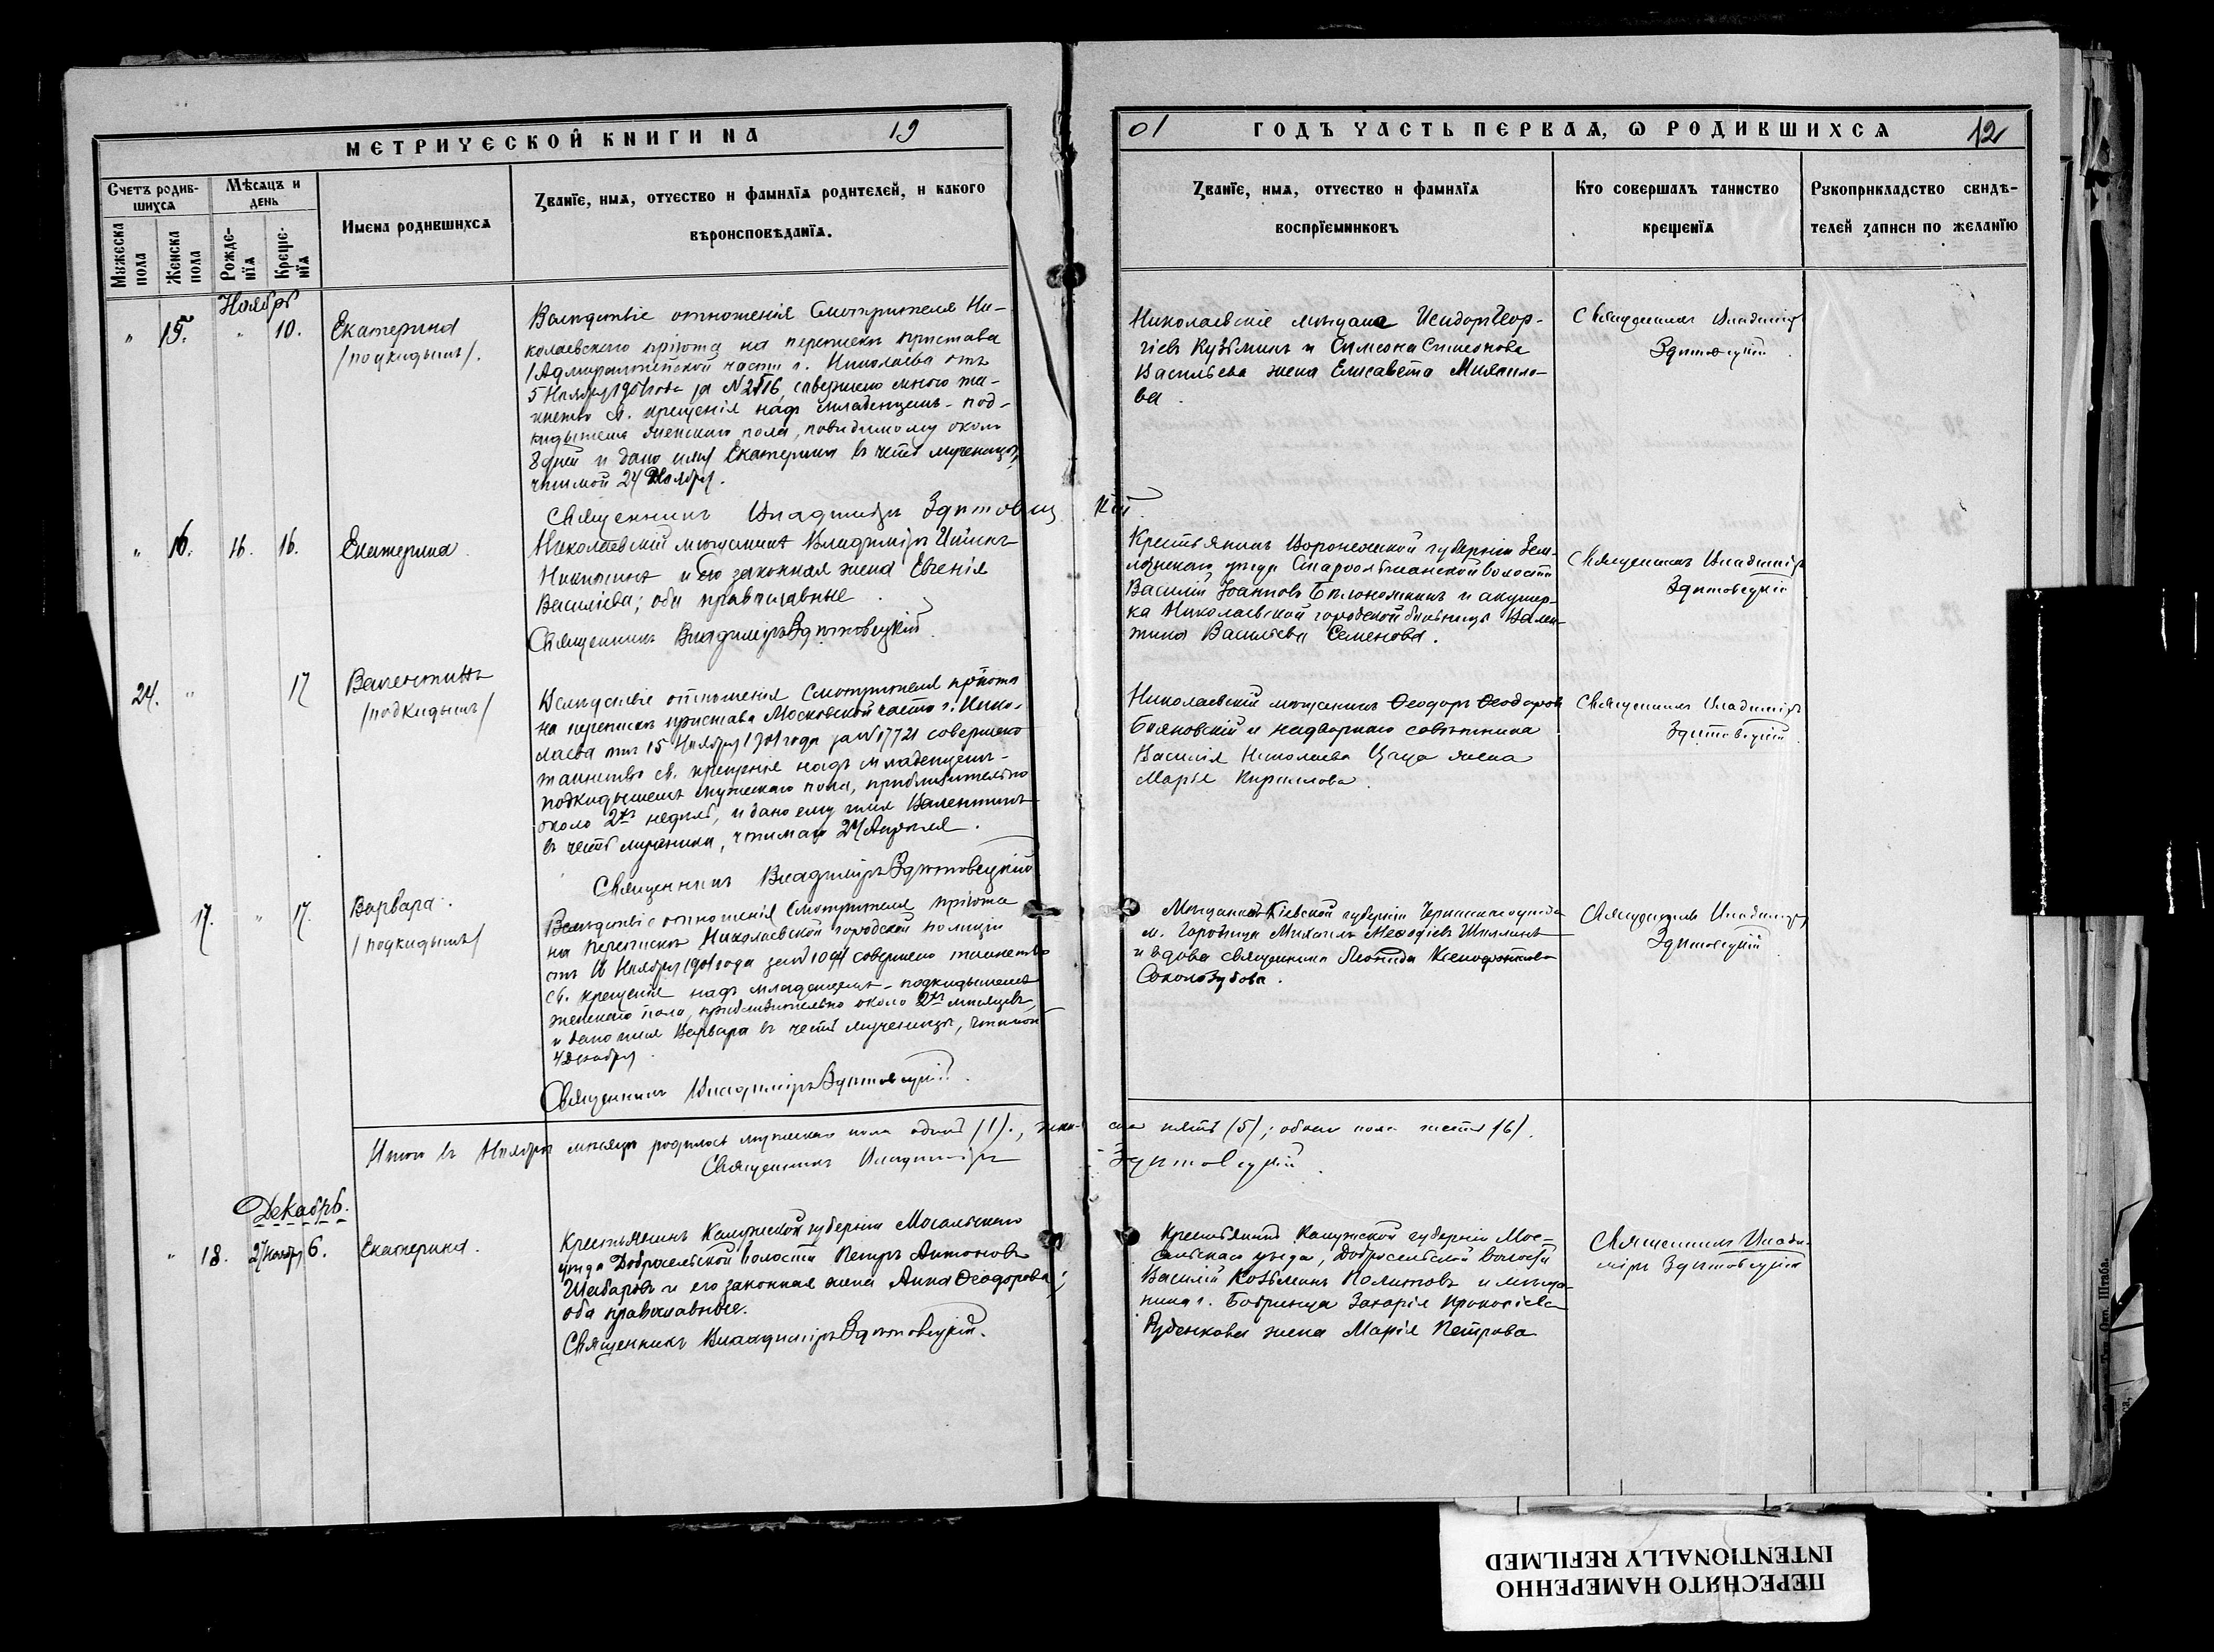 МЕТРИЧЕСКОЙ КНИГИ НА 19
01 ГОДЪ ЧАСТЬ ПЕРВАЯ, Ѡ РОДИВШИХСЯ 12
Счетъ родив-
шихся
Мѣсяцъ и
день
Мужеска
пола
Женска
пола
Рожде-
нїя
Креще-
нїя
Имена родившихся
Званїе, имя, отчество и фамилїя родителей, и какого
вѣроисповѣданїя.
Званїе, имя, отчество и фамилїя
воспрїемниковъ
Кто совершалъ таинство
крещенїя
Рукоприкладство свидѣ-
телей записи по желанїю
Ноябрь
" 15. " 10. Екатерина
/подкидышъ/.
Вслѣдствіе отношенія Смотрителя Ни-
колаевскаго пріюта на перепискѣ пристава
1 Адмиралтейской части г. Николаева отъ
5 Ноября 1901 года за № совершено мною та-
инство св. крещенія надъ младенцемъ-под-
кидышемъ женскаго пола, повидимому около
8 дней и дано имя Екатерина въ честь мученицы,
чтимой 24 Ноября.
Священникъ Владиміръ Здитовецкій
Николаевскіе мѣщане Исидоръ Геор-
гіевъ Кузьминъ и Симеона Симеонова
Васильева жена Елисавета Михаило-
ва.
Священникъ Владиміръ
Здитовецкій
" 16. 16. 16. Екатерина.
Николаевскій мѣщанинъ Владиміръ
Никитинъ и его законная жена Евгенія
Василіева; оба православные.
Священникъ Владиміръ Здитовецкій.
Крестьянинъ Воронежской губерніи Зем-
лянскаго уѣзда Староольшанской волости
Василій Іоанновъ и акушер-
ка Николаевской городской больницы Вален-
тина Василіева Семенова.
Священникъ Владиміръ
Здитовецкій
24. " 17 Валентинъ
/подкидышъ/
Вслѣдствіе отношенія Смотрителя пріюта
на перепискѣ пристава Московской части г. Нико-
лаева отъ 15 Ноября 1901 года за № 17721 совершено
таинство св. крещенія надъ младенцемъ-
подкидышемъ мужскаго пола, приблизительно
около 2хъ недѣль, и дано ему имя Валентинъ
въ честь мученика, чтимаго 24 Апрѣля.
Священникъ Владиміръ Здитовецкій
Николаевскій мѣщанинъ Ѳеодоръ Ѳеодоровъ
Бояновскій и надворнаго совѣтника
Василія Николаева Цаца жена
Марія Кириллова.
Священникъ Владиміръ
Здитовецкій
17. " 17. Варвара.
/подкидышъ/
Вслѣдствіе отношенія Смотрителя пріюта
на перепискѣ Николаевской городской полиціи
отъ 16 Ноября 1901 года за № 1094 совершено таинство
св. крещенія надъ младенцемъ-подкидышемъ
женскаго пола, приблизительно около 2хъ мѣсяцевъ,
и дано имя Варвара въ честь мученицы, чтимой
4 Декабря.
Священникъ Владиміръ Здитовецкій.
Мѣщанинъ Кіевской губерніи уѣзда
м. Городища Михаилъ Меѳодіевъ
и вдова священника Леонида Ксенофонтова
Соколозубова.
Священникъ Владиміръ
Здитовецкій
Итого въ Ноябрѣ мѣсяцѣ родилось мужескаго пола одинъ (1)., женс-каго пять (5); обоего пола шесть (6).
Священникъ Владиміръ Здитовецкій.
Декабрь.
" 18. 27 Ноябр. 6. Екатерина.
Крестьянинъ Калужской губерніи Мосальскаго
уѣзда Добросельской волости Петръ Антоновъ
Шабаровъ и его законная жена Анна Ѳеодорова;
оба православные.
Священникъ Владиміръ Здитовецкій.
Крестьянинъ Калужской губерніи Мос-
альскаго уѣзда, Добросельской волости
Василій Козьминъ Политовъ и мѣща-
нина г. Бобринца Захарія Прокопіева
Руденкова жена Марія Петрова
Священникъ Влади-
міръ Здитовецкій
Штаба.
ПЕРЕСНЯТО НАМЕРЕННО
INTENTIONALLY REFILMED